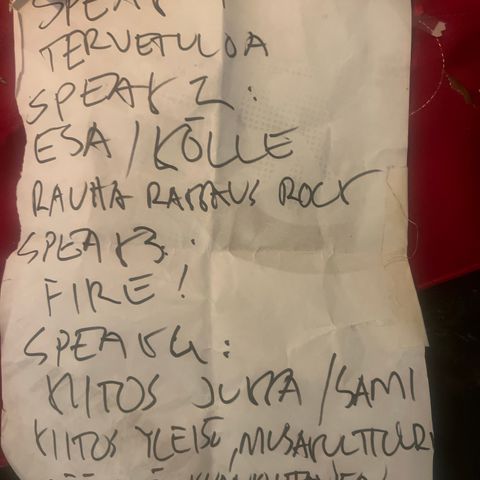 SPEAK
TERVETULOA
SPEAK 2:
ESA / KÖLLE
RAUHA RAKKAUS ROCK
SPEAK 3:
FIRE!
SPEAK 4:
KIITOS JUKKA / SAMI
KIITOS YLEISÖ, MUSAKULTTUURI